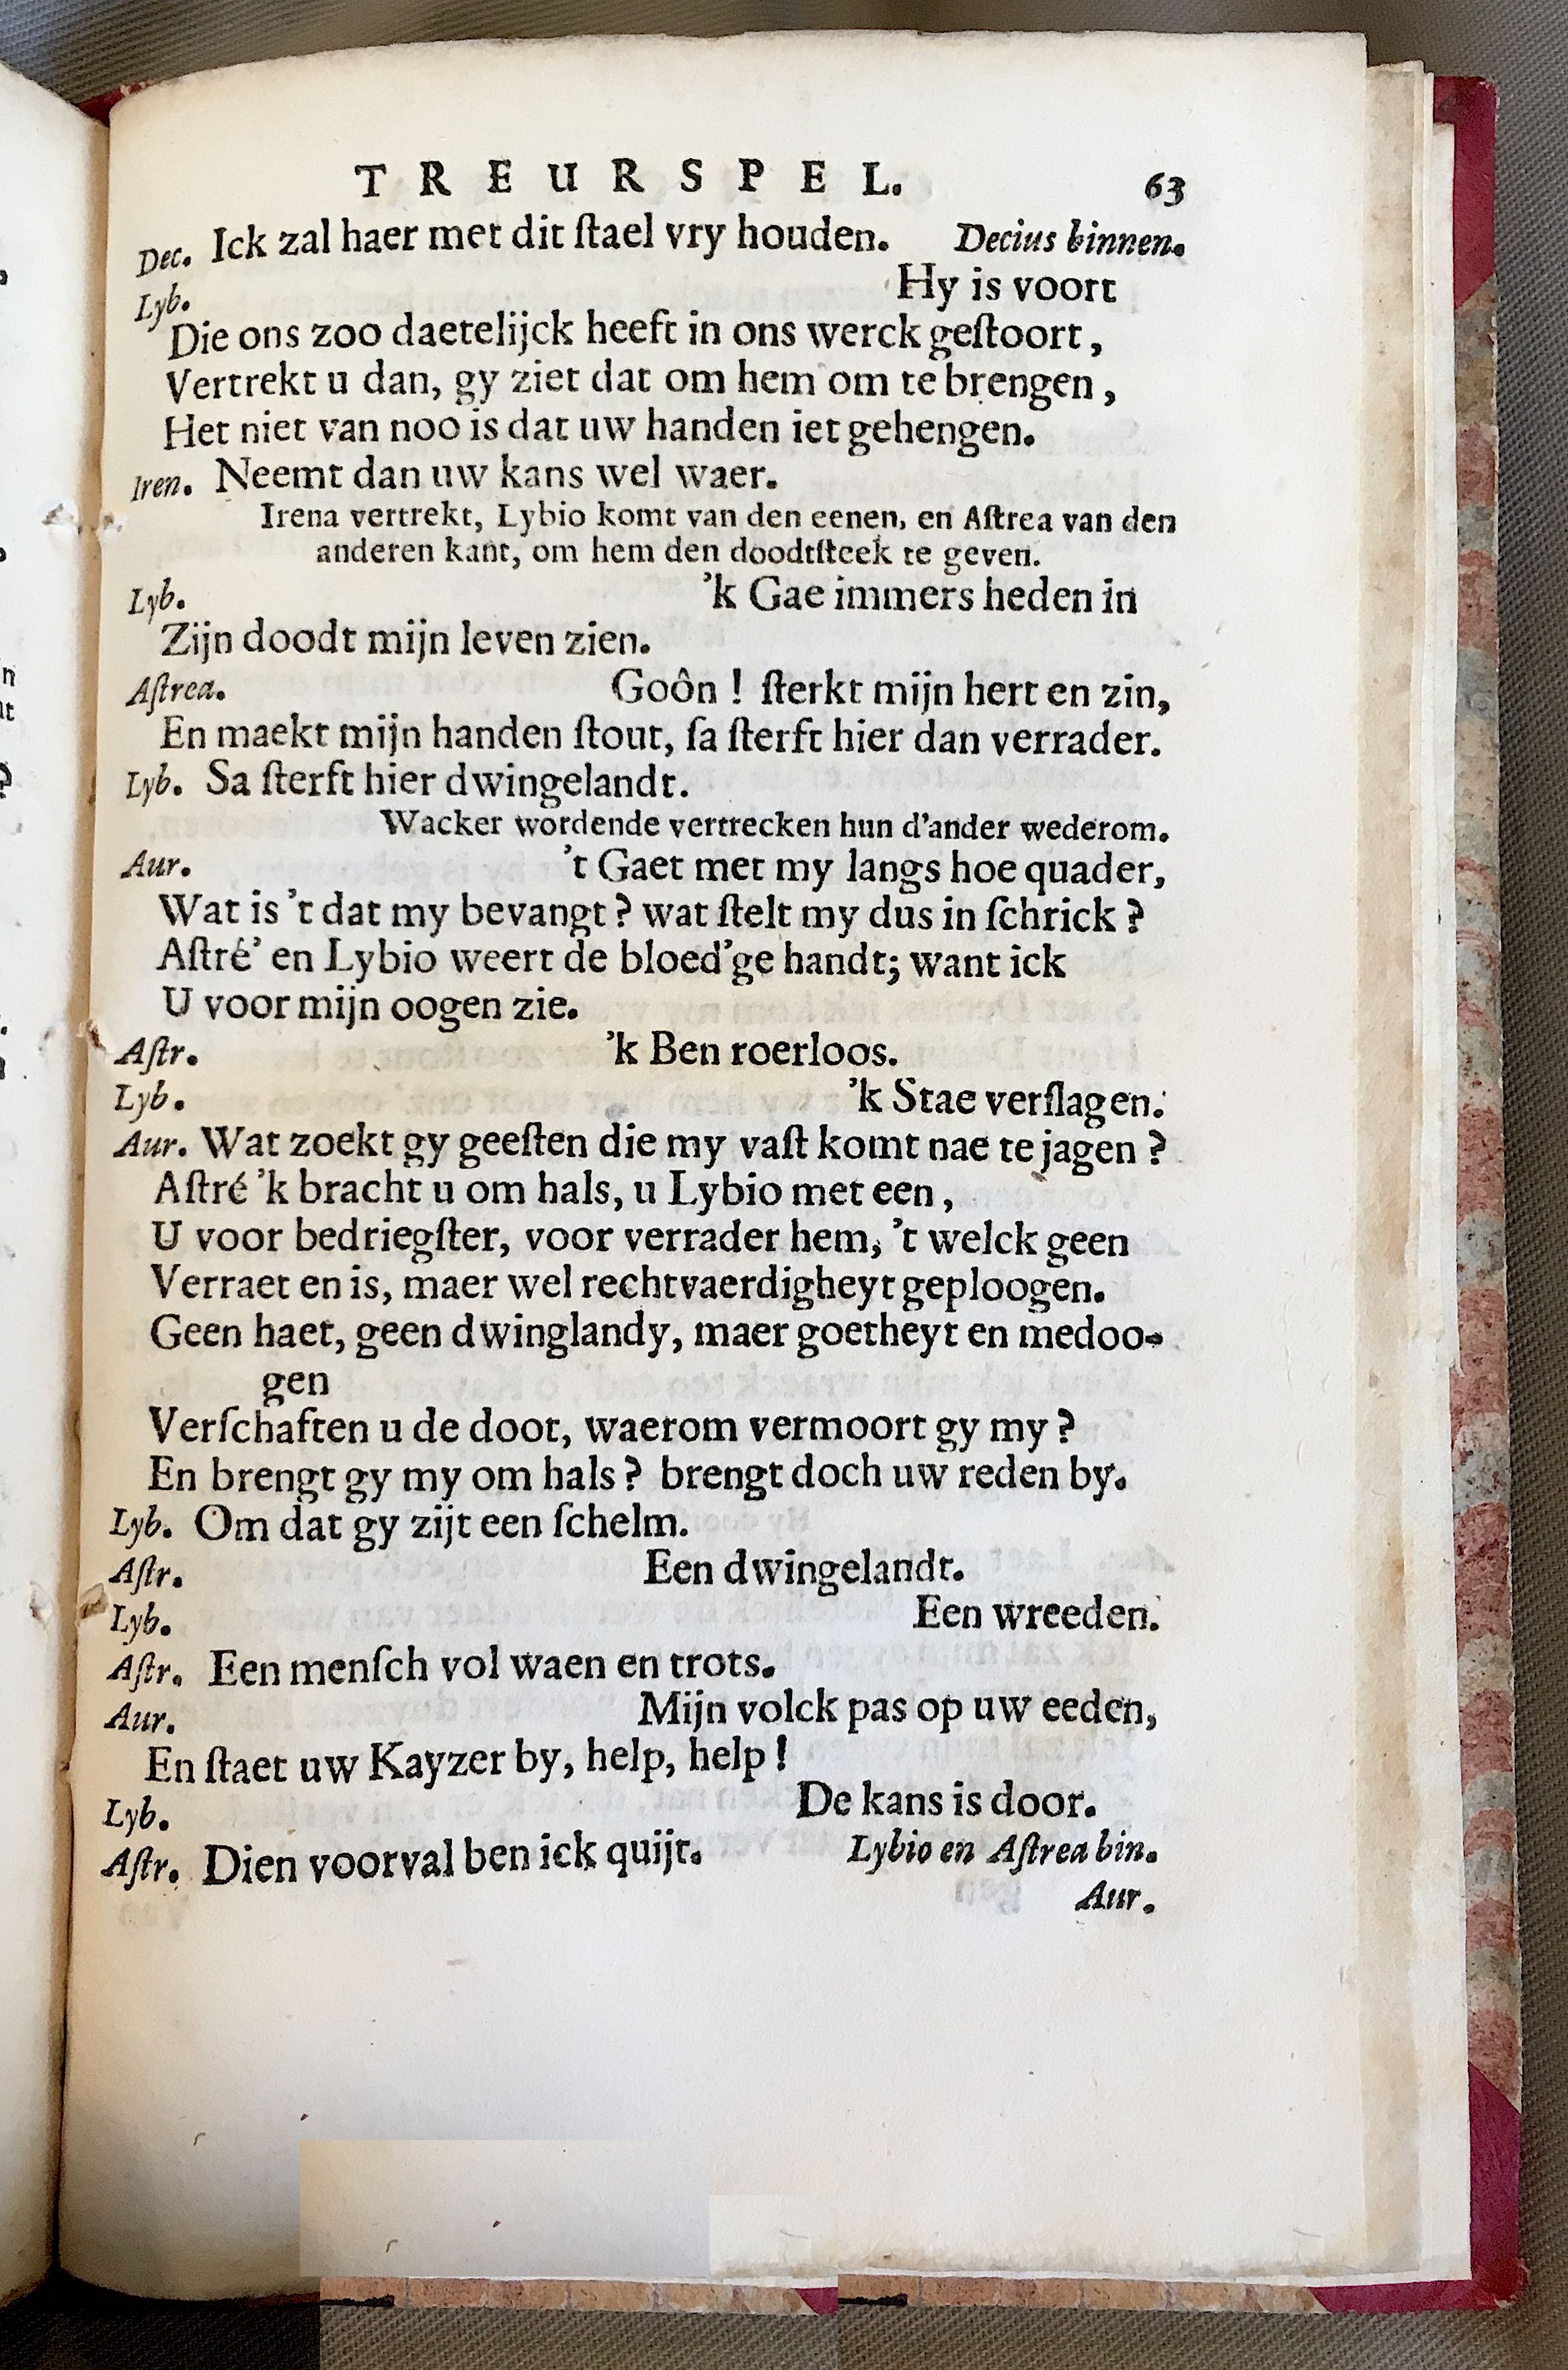 TREURSPEL. 63
Dec. Ick zal haer met dit ſtael vry houden. Decius binnen.
Lyb. Hy is voort
Die ons zoo daetelijck heeft in ons werck geſtoort,
Vertrekt u dan, gy ziet dat om hem om te brengen,
Het niet van noo is dat uw handen iet gehengen.
Iren. Neemt dan uw kans wel waer.
Irena vertrekt, Lybio komt van den eenen, en Aſtrea van den
anderen kant, om hem den doodtſteek te geven.
Lyb. 'k Gae immers heden in
Zijn doodt mijn leven zien.
Aſtrea. Goôn ! ſterkt mijn hert en zin,
En maekt mijn handen ſtout, ſa ſterft hier dan verrader.
Lyb. Sa ſterft hier dwingelandt.
Wacker wordende vertrecken hun d'ander wederom.
Aur. 't Gaet met my langs hoe quader,
Wat is 't dat my bevangt ? wat ſtelt my dus in ſchrick ?
Aſtré' en Lybio weert de bloed'ge handt; want ick
U voor mijn oogen zie.
Aſtr. 'k Ben roerloos.
Lyb. 'k Stae verſlagen.
Aur. Wat zoekt gy geeſten die my vaſt komt nae te jagen ?
Aſtré 'k bracht u om hals, u Lybio met een,
U voor bedriegſter, voor verrader hem, 't welck geen
Verraet en is, maer wel rechtvaerdigheyt geploogen.
Geen haet, geen dwinglandy, maer goetheyt en medoo-
gen
Verſchaften u de doot, waerom vermoort gy my ?
En brengt gy my om hals ? brengt doch uw reden by.
Lyb. Om dat gy zijt een ſchelm.
Aſtr. Een dwingelandt.
Lyb. Een wreeden.
Aſtr. Een menſch vol waen en trots.
Aur. Mijn volck pas op uw eeden,
En ſtaet uw Kayzer by, help, help !
Lyb. De kans is door.
Aſtr. Dien voorval ben ick quijt. Lybio en Aſtrea bin.
Aur.